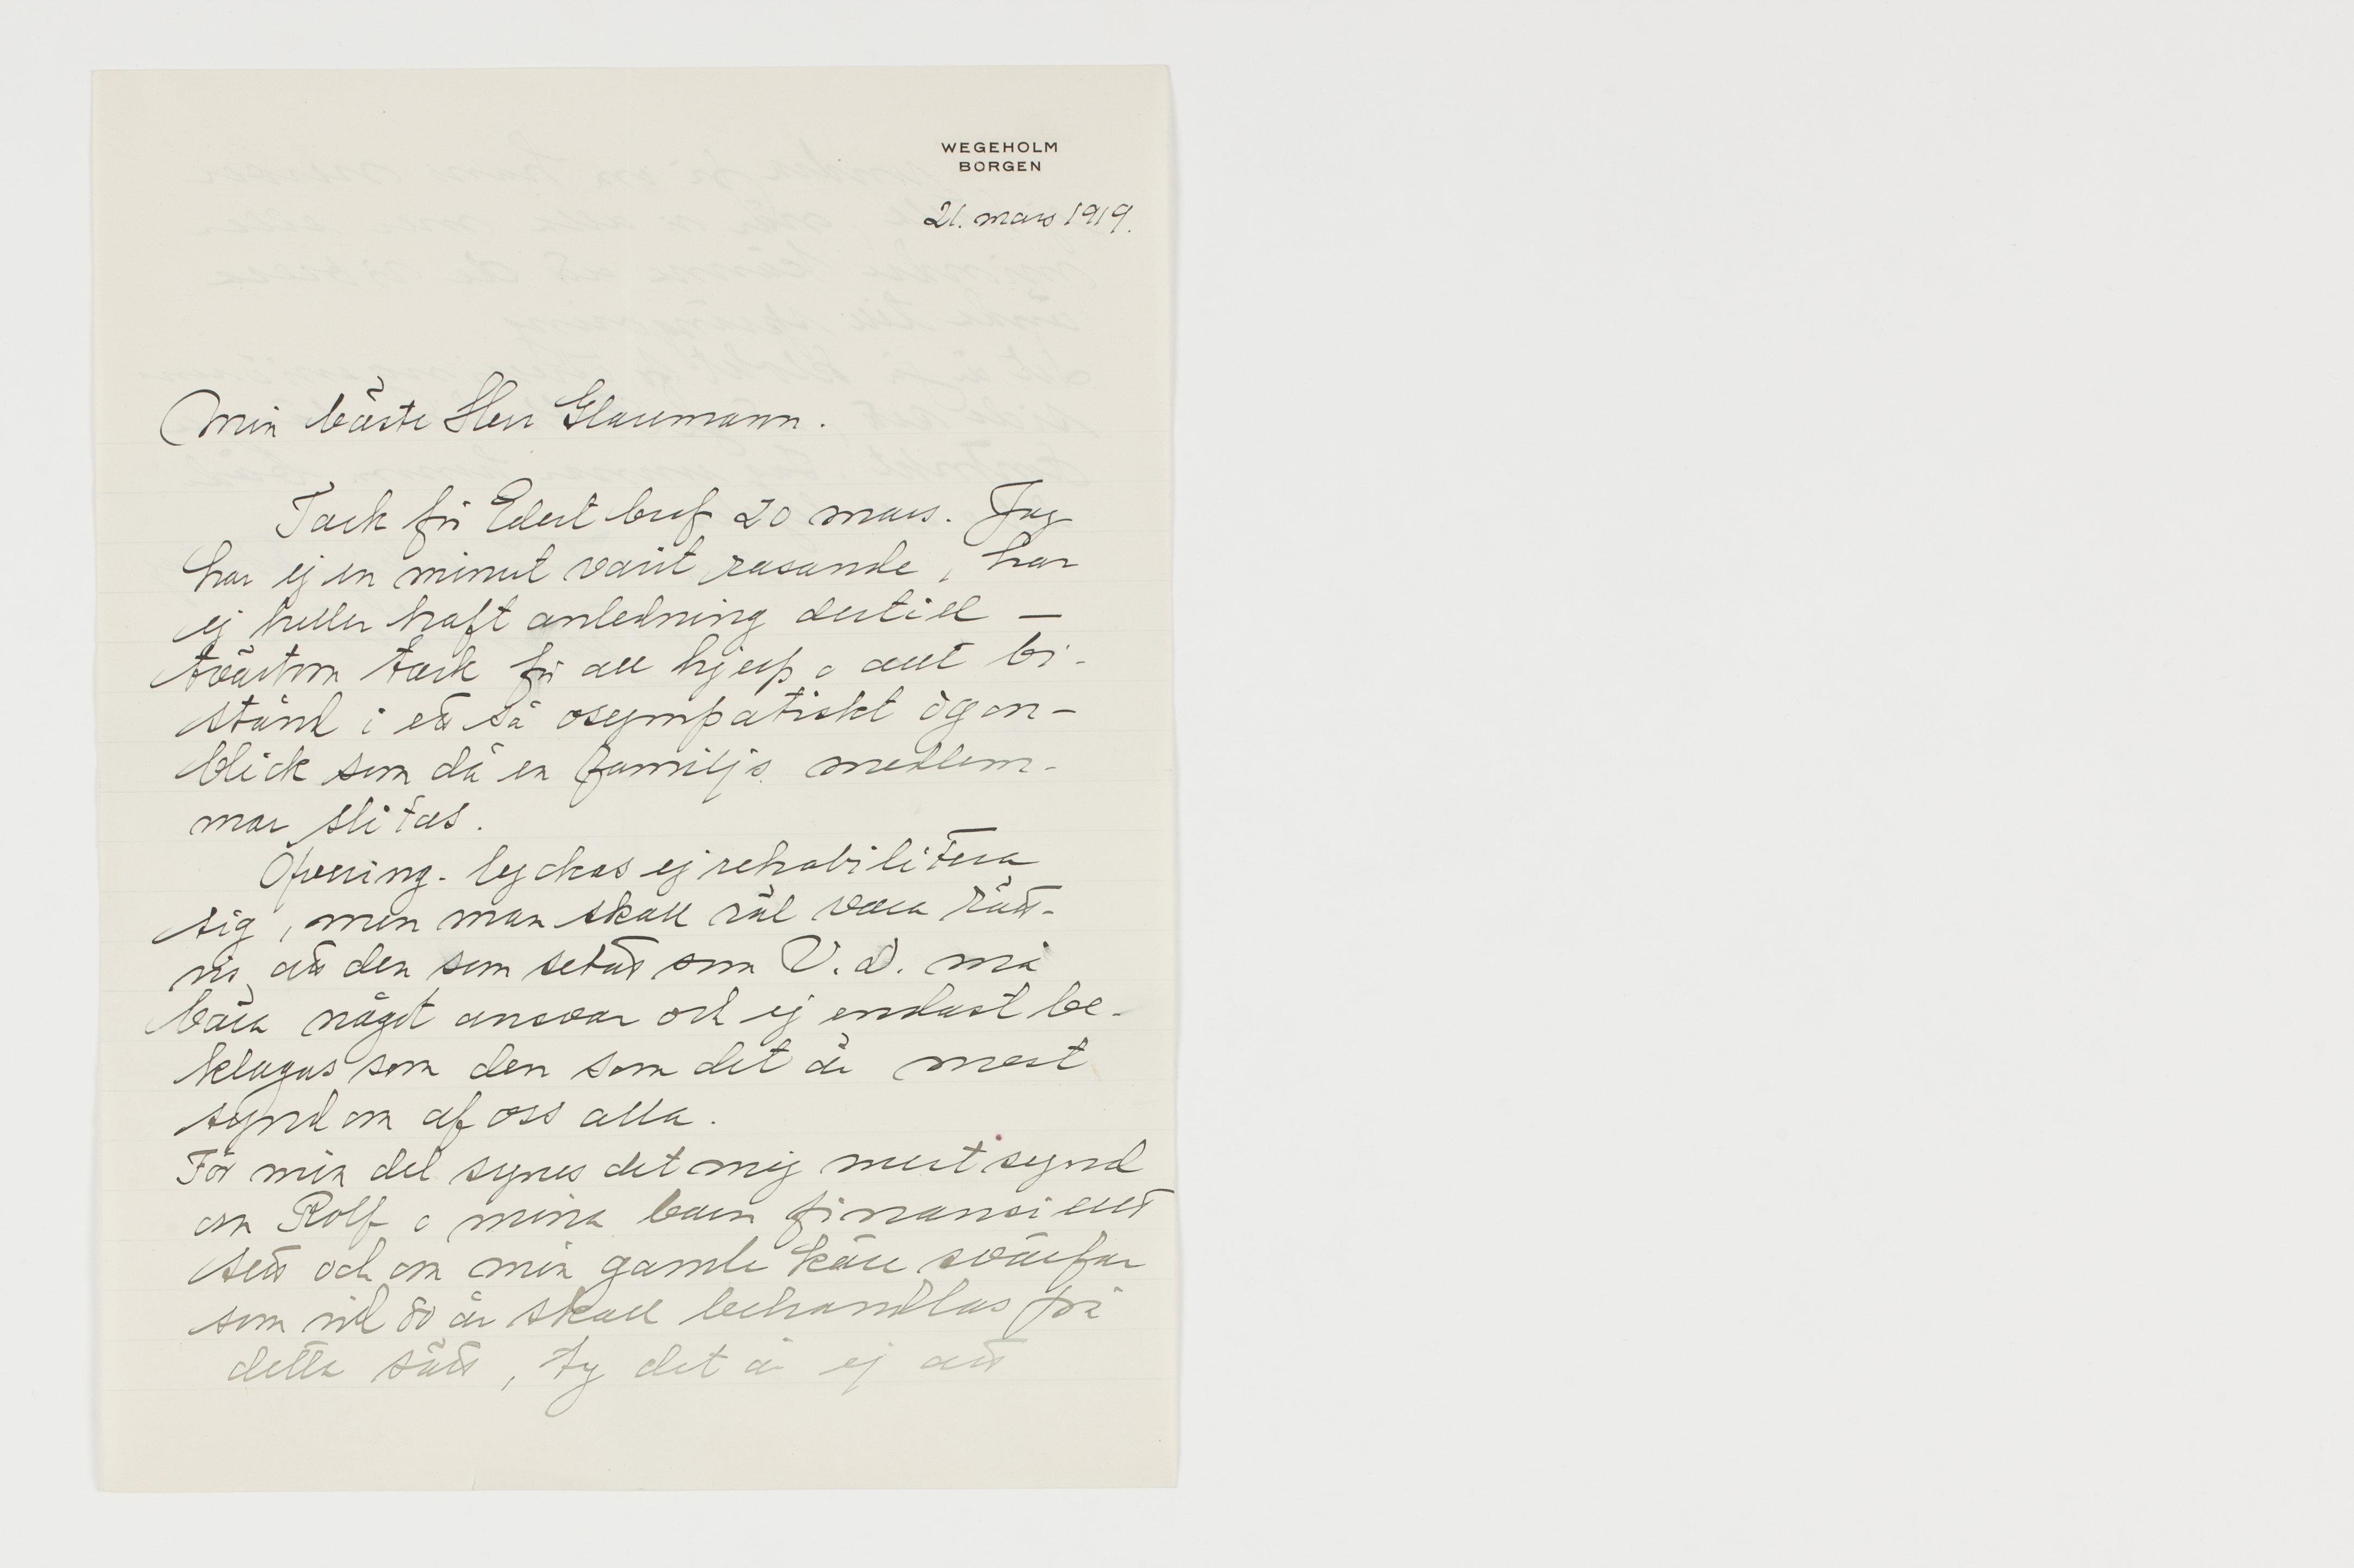 WEGEHOLM
BORGEN
21. mars 1919.
Min bäste Herr Glaumann.
Tack för Edert bref 20 mars. Jag
har ej en minut varit rasande, har
ej heller haft anledning dertill —
tvärtom tack för all hjelp o allt bi-
stånd i ett så osympatiskt ögon-
blick som då en familjs medlem-
mar slitas.
lyckas ej rehabilitera
sig, men man skall väl vara rätt-
vis, att den som setat som V.D. må
bära något ansvar och ej endast be-
klagas som den som det är mest
synd om af oss alla.
För min del synes det mig mest synd
om Rolf o mina barn finansiellt
sett och om min gamle käre svärfar
som vid 80 år skall behandlas på
detta sätt, ty det är ej att